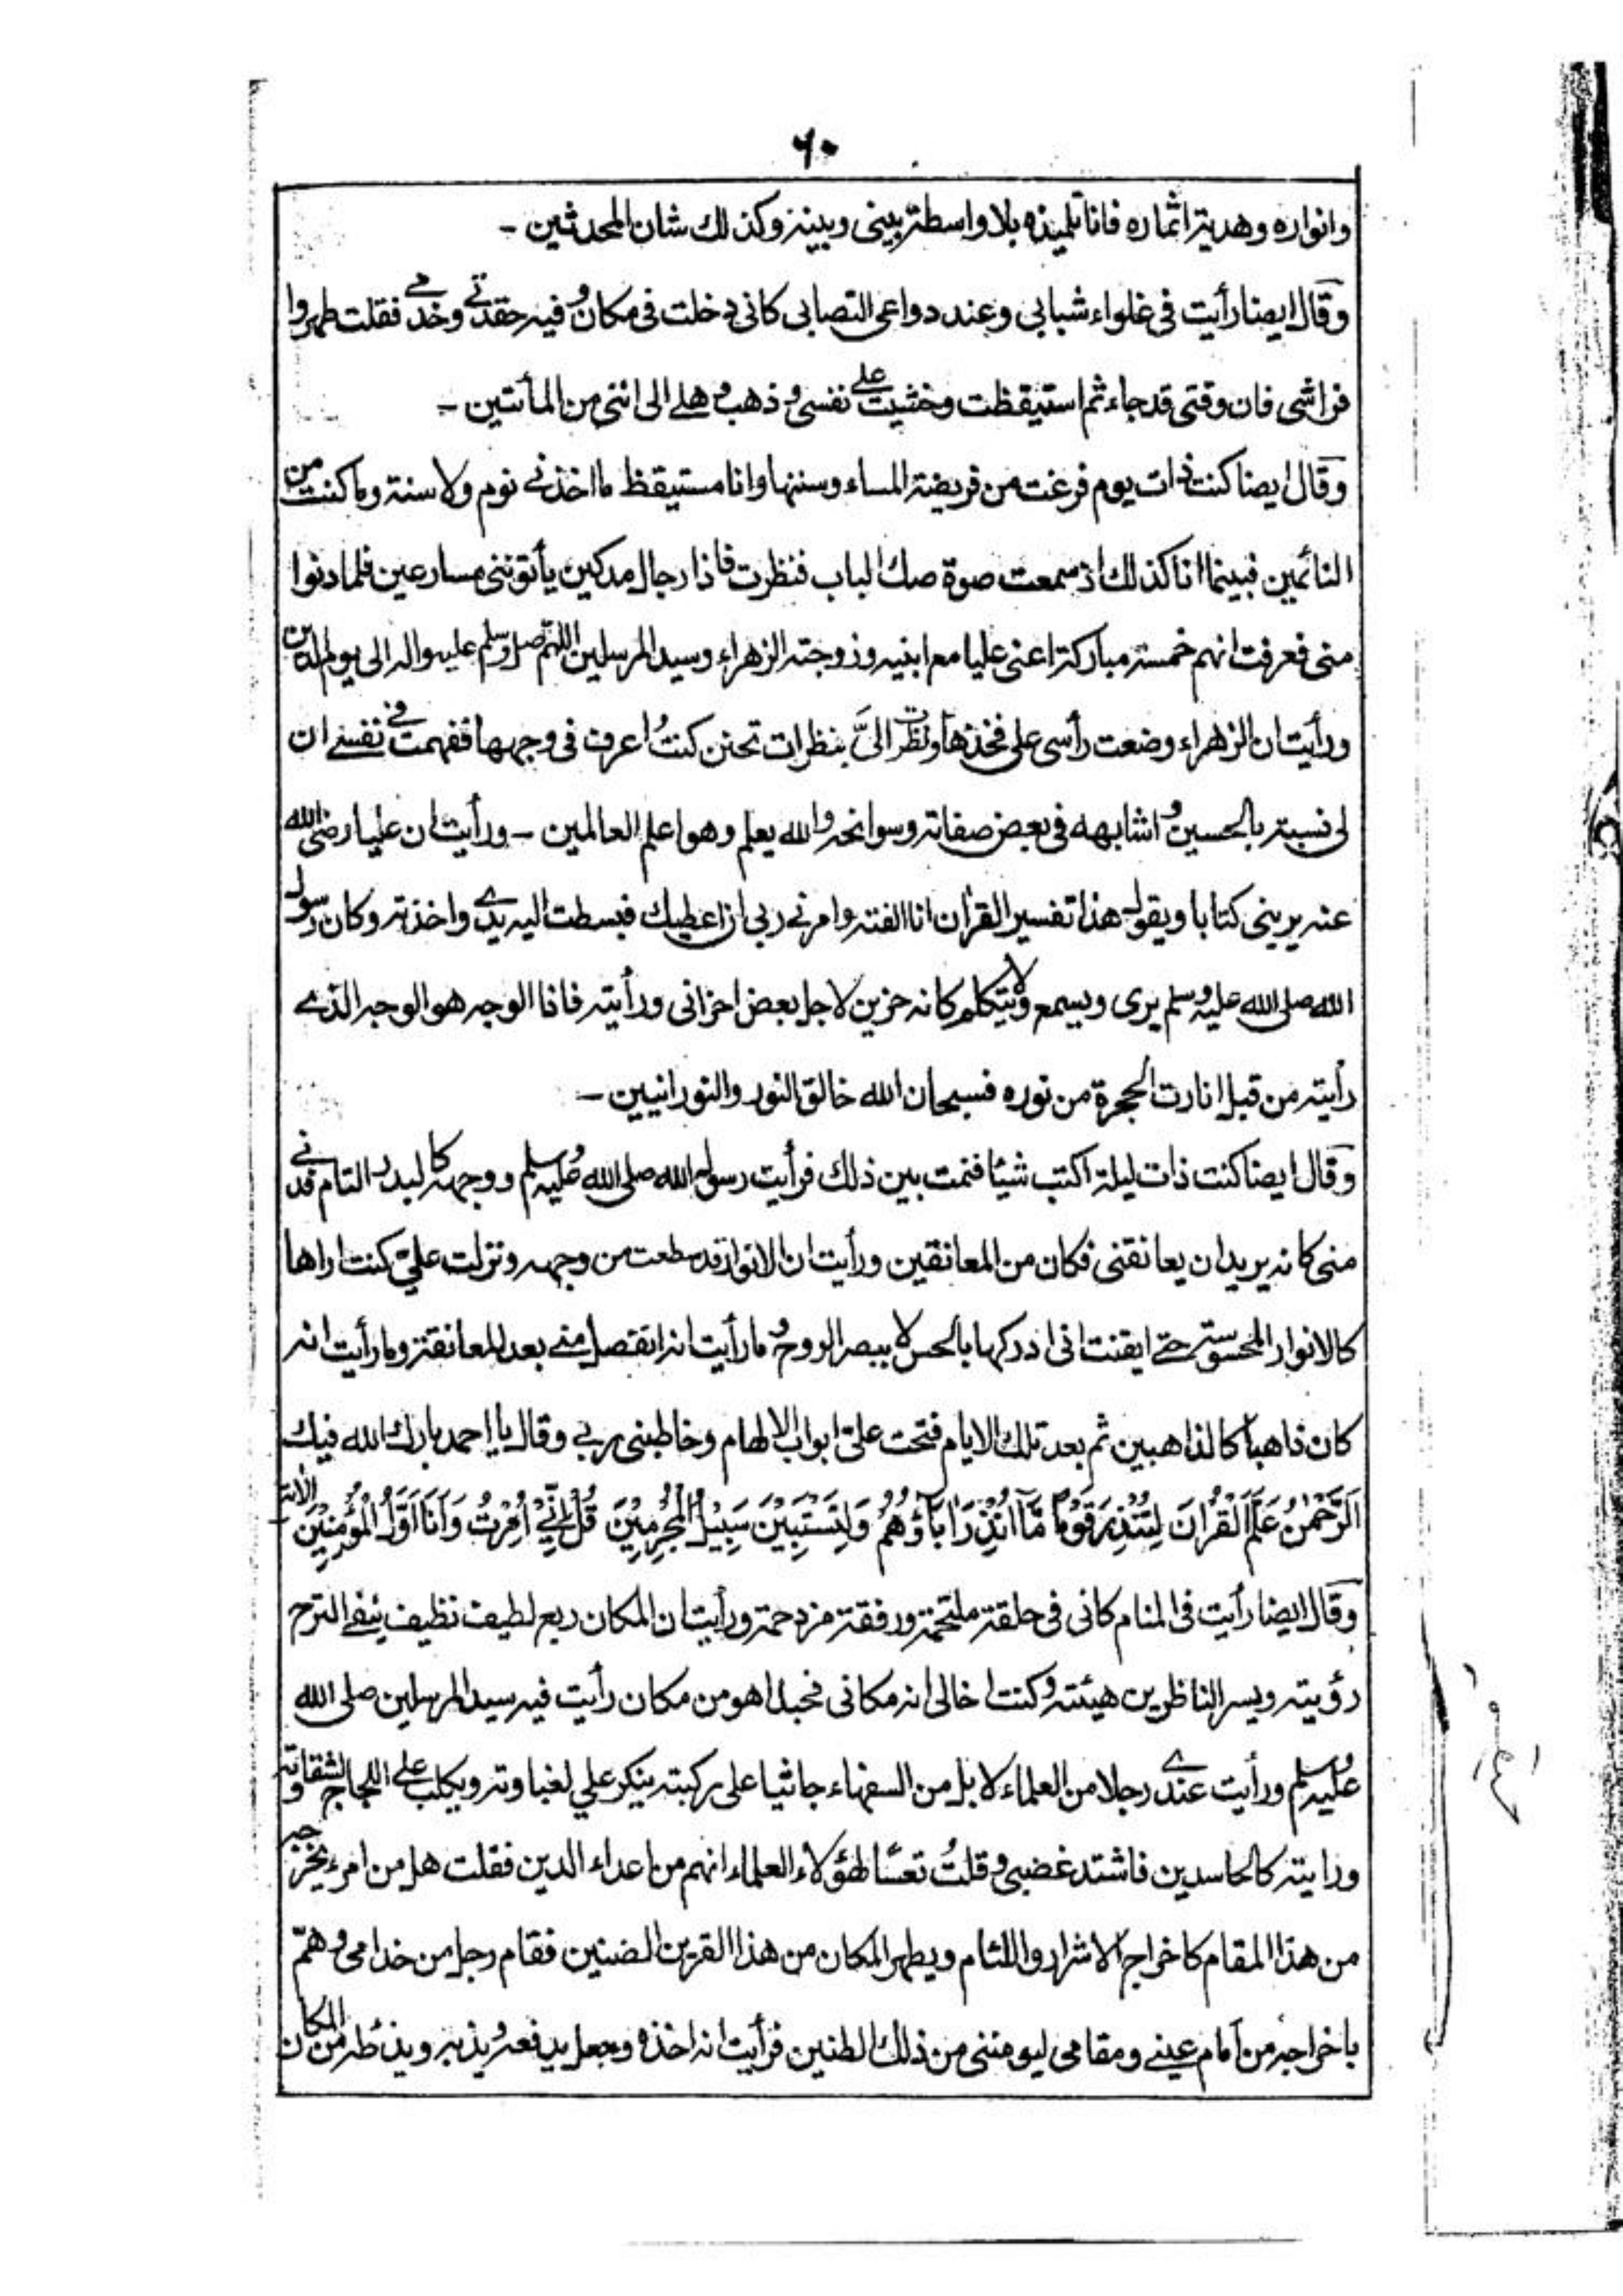 ٦٠
وانواره وهدية اثماره فانا تلميذه بلا واسطة بينى وبينه وكذلك شان المحدثين -
وقال ايضا رأيت فى غلواء شبابى وعند دواعى التصابى كانى دخلت فى مكان وفيه حفدتى وخدمى فقلت طهروا
فراشى فان وقتى قد جاء ثم استيقظت وخشيت على نفسى وذهب وهلى الى اننى من المائتين -
وقال ايضا كنت ذات يوم فرغت من فريضة المساء وسننها وانا مستيقظ ما اخذنى نوم ولا سنة وما كنت من
النائمين فبينما انا كذلك اذ سمعت صوة صك الباب فنظرت فاذا رجال مدكين يأتوننى مسارعين فلما دنوا
منى فعرفت انهم خمسة مباركة اعنى عليا مع ابنيه وزوجته الزهراء وسيد المرسلين اللهم صل وسلم عليه واله الى يوم الدين
ورأيت ان الزهراء وضعت رأسى على فخذها ونظرت الىَّ بنظرات تحنن كنتُ اعرف فى وجهها ففهمت فى نفسى ان
لى نسبة بالحسين واشابهه فى بعض صفاته وسوانحه والله يعلم وهو اعلم العالمين - ورأيت ان عليا رضى الله
عنه يرينى كتابا ويقول هذا تفسير القرآن انا الفته وامرنى ربى ان اعطيك فبسطت اليه يدى واخذته وكان رسول
الله صلى الله عليه وسلم يرى ويسمع ولا يتكلم كانه حزين لاجل بعض احزانى ورأيته فاذا الوجه هو الوجه الذى
رأيته من قبل انارت الحجرة من نوره فسبحان الله خالق النور والنورانيين -
وقال ايضا كنت ذات ليلة اكتب شيئا فنمت بين ذلك فرأيت رسول الله صلى الله عليه وسلم ووجهه كالبدر التام فدنى
منى كانه يريد ان يعانقنى فكان من المعانقين ورأيت ان الانوار قد سطعت من وجهه ونزلت علىّ كنت اراها
كالانوار المحسوسة حتى ايقنت انى ادركها بالحس لا ببصر الروح وما رأيت انه انفصل منى بعد المعانقة وما رأيت انه
كان ذاهبا كالذاهبين ثم بعد تلك الايام فتحت علىّ ابواب الالهام وخاطبنى ربى وقال يا احمد بارك الله فيك
اَلرَّحْمٰنُ عَلَّمَ الْقُرْاٰنَ لِتُنْذِرَ قَوْمًا مَّا اُنْذِرَ اٰبَاؤُهُمْ وَلِتَسْتَبِيْنَ سَبِيْلُ الْمُجْرِمِيْنَ قُلْ اِنِّيْ اُمِرْتُ وَاَنَا اَوَّلُ الْمُؤْمِنِيْنَ الآية
وقال ايضا رأيت فى المنام كانى فى حلقة ملتحمة ورفقة مزدحمة ورأيت ان المكان ربع لطيف نظيف ينفى الترح
رؤيته ويسر الناظرين هيئته وكنت اخالى انه مكانى فحبذا هو من مكان رأيت فيه سيد المرسلين صلى الله
عليه وسلم ورأيت عندى رجلا من العلماء لا بل من السفهاء جاثيا على ركبته ينكر علي لغباوته ويكلب على اللجاج لشقاوته
ورايته كالحاسدين فاشتد غضبى وقلتُ تعسًا لهؤلاء العلماء انهم من اعداء الدين فقلت هل من امرء يخرجه
من هذا المقام كاخراج الاشرار واللئام ويطهر المكان من هذا القرين الضنين فقام رجل من خدامى وهمّ
باخراجه من امام عينى ومقامى ليومننى من ذلك الطنين فرأيت انه اخذه وجعل يدفعه ويذبه ويذئطه من المكان